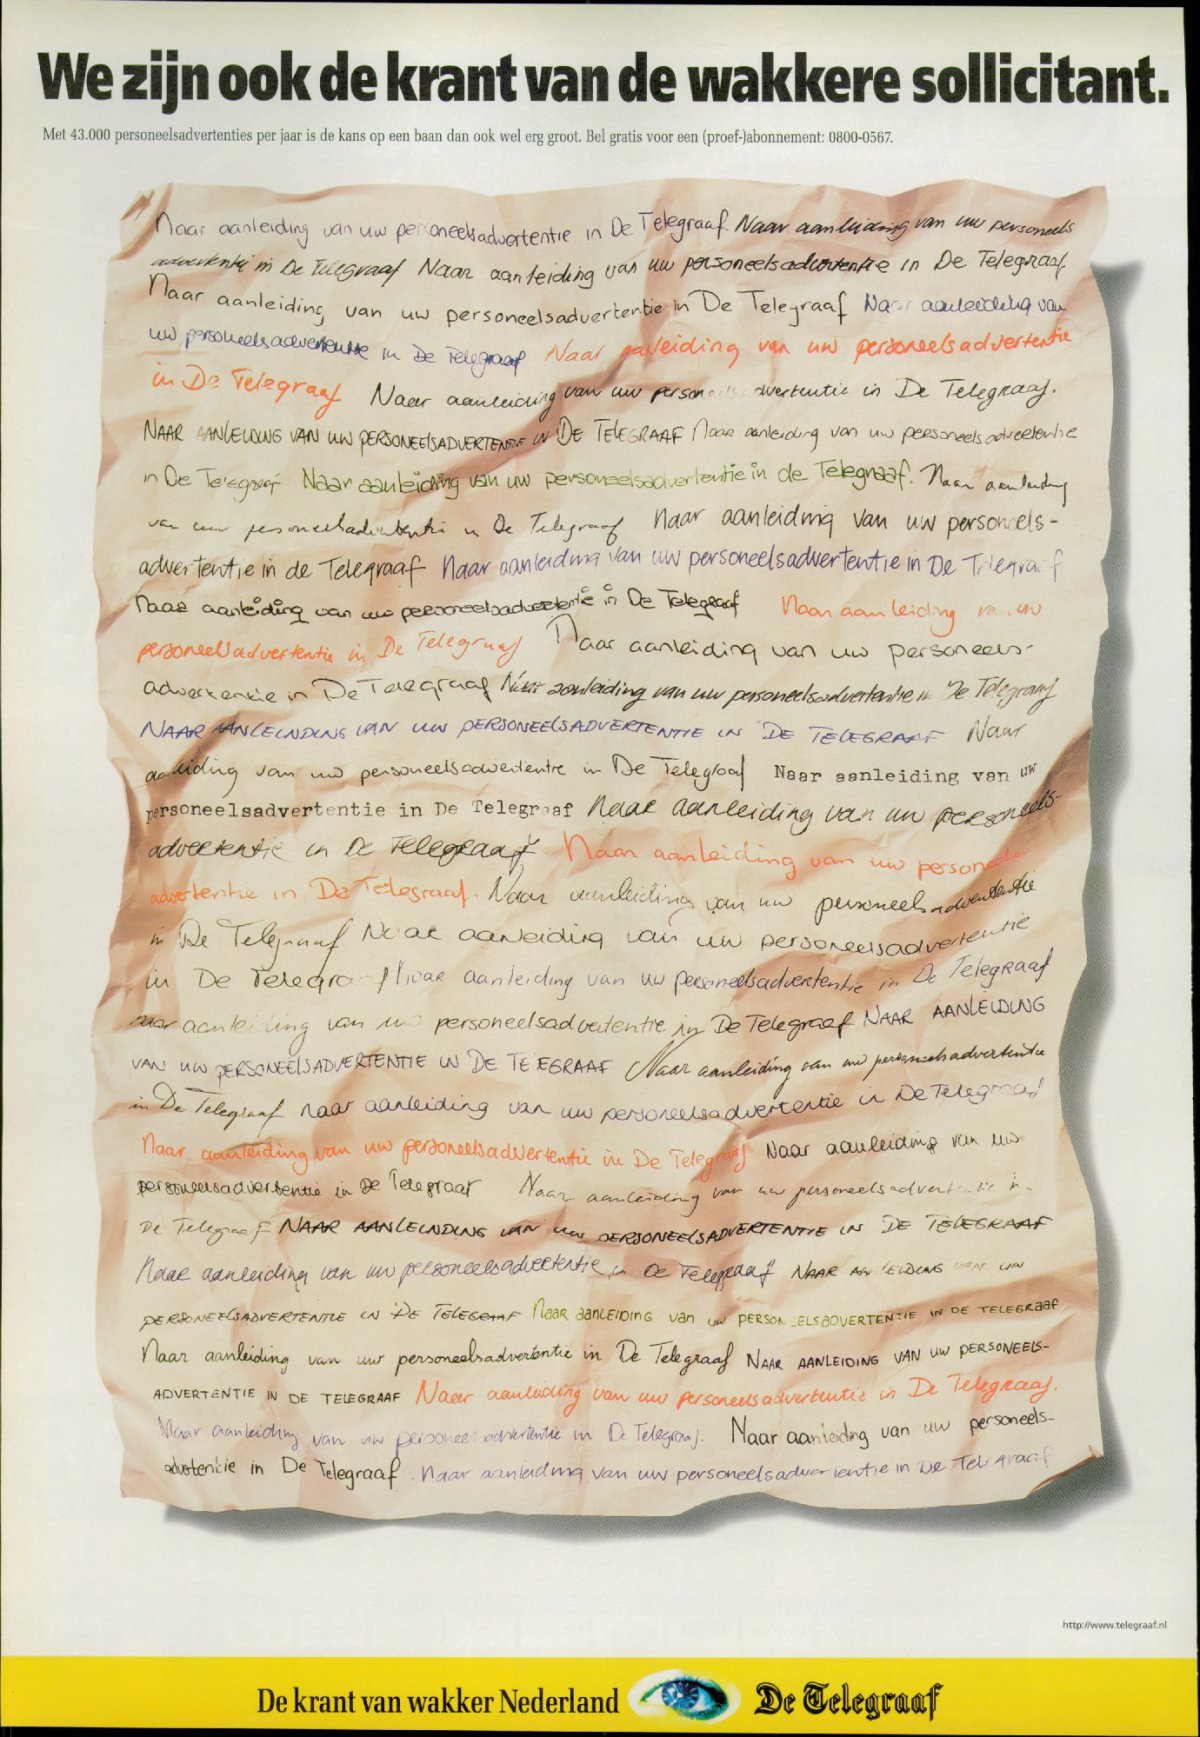 We zijn ook de krant van de wakkere sollicitant.
Met 43.000 personeelsadvertenties per jaar is de kans op een baan dan ook wel erg groot. Bel gratis voor een (proef-)abonnement: 0800-0567.
Naar aanleiding van uw personeelsadvertentie in De Telegraaf. Naar aanleiding van uw personeels
advertentie in De Telegraaf Naar aanleiding van uw personeelsadvertentie in De Telegraaf
Naar aanleiding van uw personeelsadvertentie in De Telegraaf Naar aanleiding van
uw personeelsadvertentie in De Telegraaf Naar aanleiding van uw personeelsadvertentie
in De Telegraaf Naar aanleiding van uw personeelsadvertentie in De Telegraaf.
NAAR AANLEIDING VAN UW PERSONEELSADVERTENTIE IN DE TELEGRAAF Naar aanleiding van uw personeelsadvertentie
in De Telegraaf Naar aanleiding van uw personeelsadvertentie in de Telegraaf. Naar aanleiding
van uw personeelsadvertentie in De Telegraaf Naar aanleiding van uw personeels-
advertentie in de Telegraaf Naar aanleiding van uw personeelsadvertentie in De Telegraaf
Naar aanleiding van uw personeelsadvertentie in De Telegraaf Naar aanleiding van uw
personeelsadvertentie in De Telegraaf Naar aanleiding van uw personeels-
advertentie in De Telegraaf Naar aanleiding van uw personeelsadvertentie in De Telegraaf
NAAR AANLEINDING VAN UW PERSONEELSADVERTENTIE IN DE TELEGRAAF Naar
aanleiding van uw personeelsadvertentie in De Telegraaf Naar aanleiding van uw
personeelsadvertentie in De Telegraaf Naar aanleiding van uw personeels-
advertentie in De Telegraaf. Naar aanleiding van uw personeels-
advertentie in De Telegraaf. Naar aanleiding van uw personeelsadvertentie
in De Telegraaf Naar aanleiding van uw personeelsadvertentie
in De Telegraaf Naar aanleiding van uw personeelsadvertentie in De Telegraaf
naar aanleiding van uw personeelsadvertentie in De Telegraaf NAAR AANLEIDING
VAN UW PERSONEELSADVERTENTIE IN DE TELEGRAAF Naar aanleiding van uw personeelsadvertentie
in De Telegraaf naar aanleiding van uw personeelsadvertentie in De Telegraaf
Naar aanleiding van uw personeelsadvertentie in De Telegraaf Naar aanleiding van uw
personeelsadvertentie in De Telegraaf Naar aanleiding van uw personeelsadvertentie in
De Telegraaf NAAR AANLEINDING VAN UW PERSONEELSADVERTENTIE IN DE TELEGRAAF
Naar aanleiding van uw personeelsadvertentie in De Telegraaf NAAR AANLEIDING VAN UW
PERSONEELSADVERTENTIE IN DE TELEGRAAF Naar aanleiding van uw PERSONEELSADVERTENTIE IN DE TELEGRAAF
Naar aanleiding van uw personeelsadvertentie in De Telegraaf NAAR AANLEIDING VAN UW PERSONEELS-
ADVERTENTIE IN DE TELEGRAAF Naar aanleiding van uw personeelsadvertentie in De Telegraaf.
Naar aanleiding van uw personeelsadvertentie in De Telegraaf. Naar aanleiding van uw personeels-
advertentie in De Telegraaf. Naar aanleiding van uw personeelsadvertentie in De Telegraaf
http://www.telegraaf.nl
De krant van wakker Nederland De Telegraaf